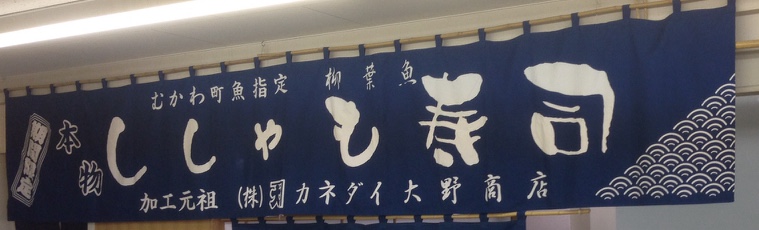 むかわ町魚指定 柳葉魚
本物
ししゃも寿司
加工元祖 (株) カネダイ大野商店